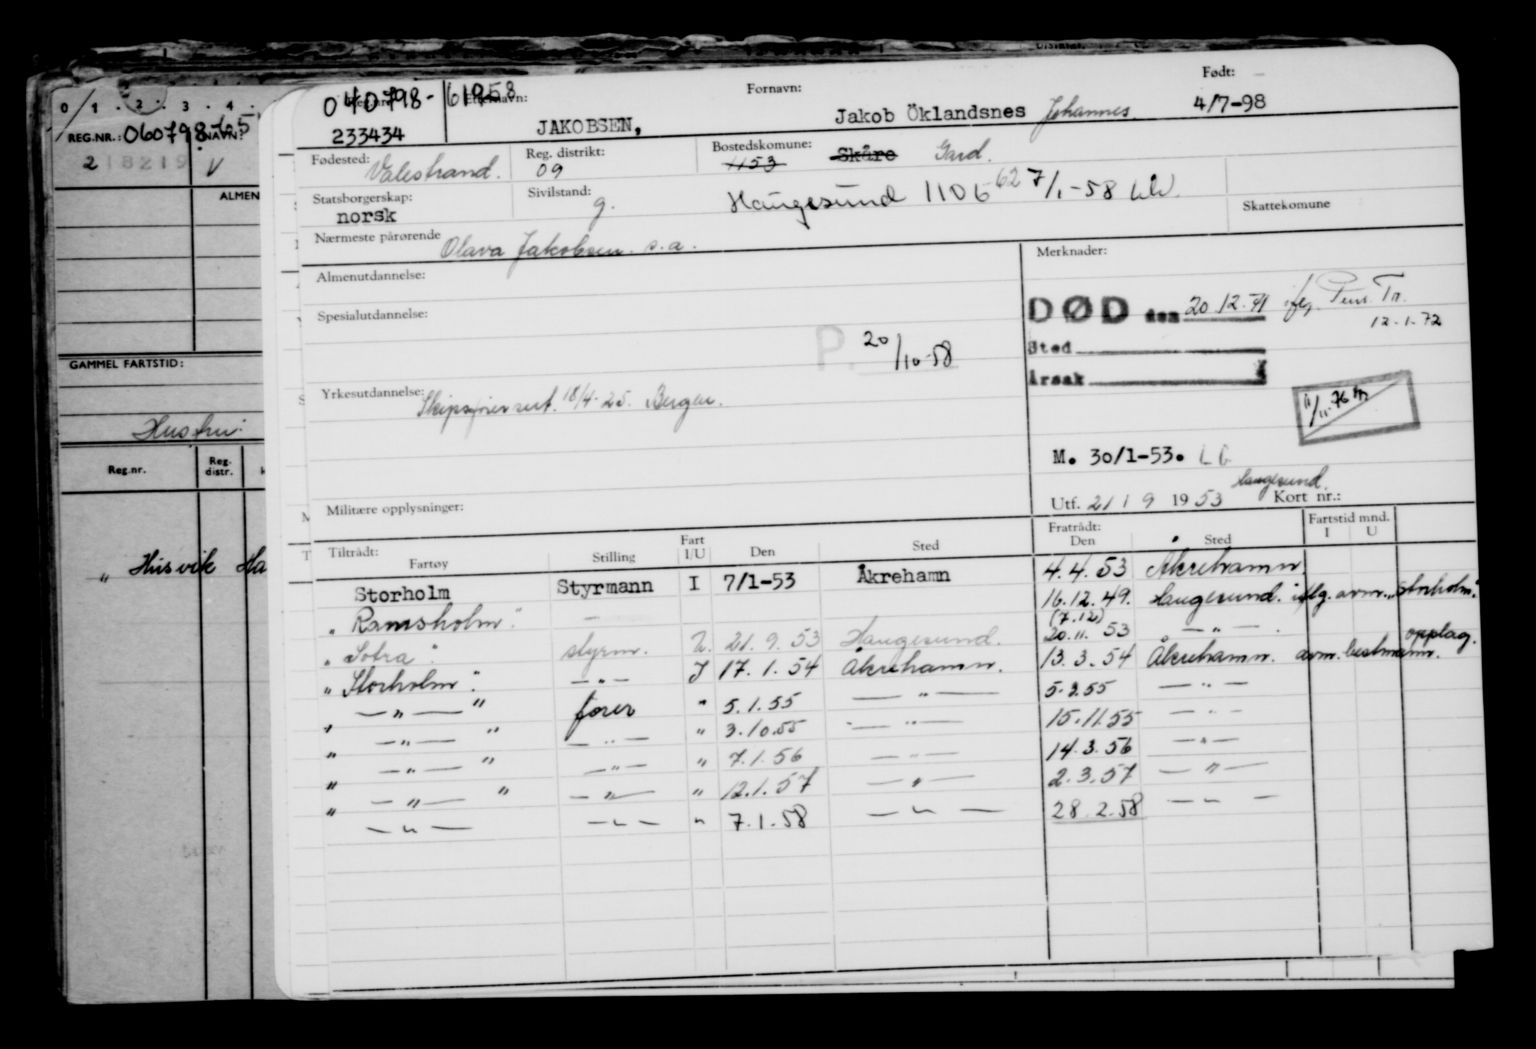 0 . 1 . 2 . 3 . 4 .
REG.NR.: 060798 NAVN:
218219 V
ALMEN
GAMMEL FARTSTID:
Reg.nr. Reg. distr.
" Husvik Ha
040798- 61958
Etternavn: Fornavn: Født:
233434 JAKOBSEN, Jakob Öklandsnes Johannes 4/7-98
Fødested: Valestrand. Reg. distrikt: 09 Bostedskomune: 1153 Skåre Gard.
Statsborgerskap: norsk Sivilstand: g. Haugesund 1106 62 7/1-58
Skattekomune
Nærmeste pårørende Olava Jakobsen s.a.
Merknader:
Almenutdannelse:
DØD den 20.12.71 ifg. Pens. Tr.
12-1-72
Spesialutdannelse:
P. 20/10-58
Sted
Årsak
Yrkesutdannelse: Skipsfører sert. 18/4-25. Bergen.
11/11-76
M. 30/1-53. LG
Haugesund.
Utf. 21 / 9 1953 Kort nr.:
Militære opplysninger:
Tiltrådt: Fratrådt: Fartstid mnd.
Fartøy Stilling Fart I/U Den Sted Den Sted I U
Storholm Styrmann I 7/1-53 Åkrehamn 4.4.53 Åkrehamn.
" Ramsholm". — 16.12.49. Haugesund. iflg. avm. "Storholm".
(7.12)
" Sotra". styrm. U. 21.9.53 Haugesund. 20.11.53 — " — . opplag.
" Storholm". — " — I 17.1.54 Åkrehamn. 13.3.54 Åkrehamn. avm. bestmann.
" — " — " fører " 5.1.55 — " — 5.2.55 — " —
" — " — " — " — " 3.10.55 — " — 15.11.55 — " —
" — " — " — " — " 7.1.56 — " — 14.3.56 — " —
" — " — " — " — " 12.1.57 — " — 2.3.57 — " —
" — " — — " — " 7.1.58 — " — 28.2.58 — " —